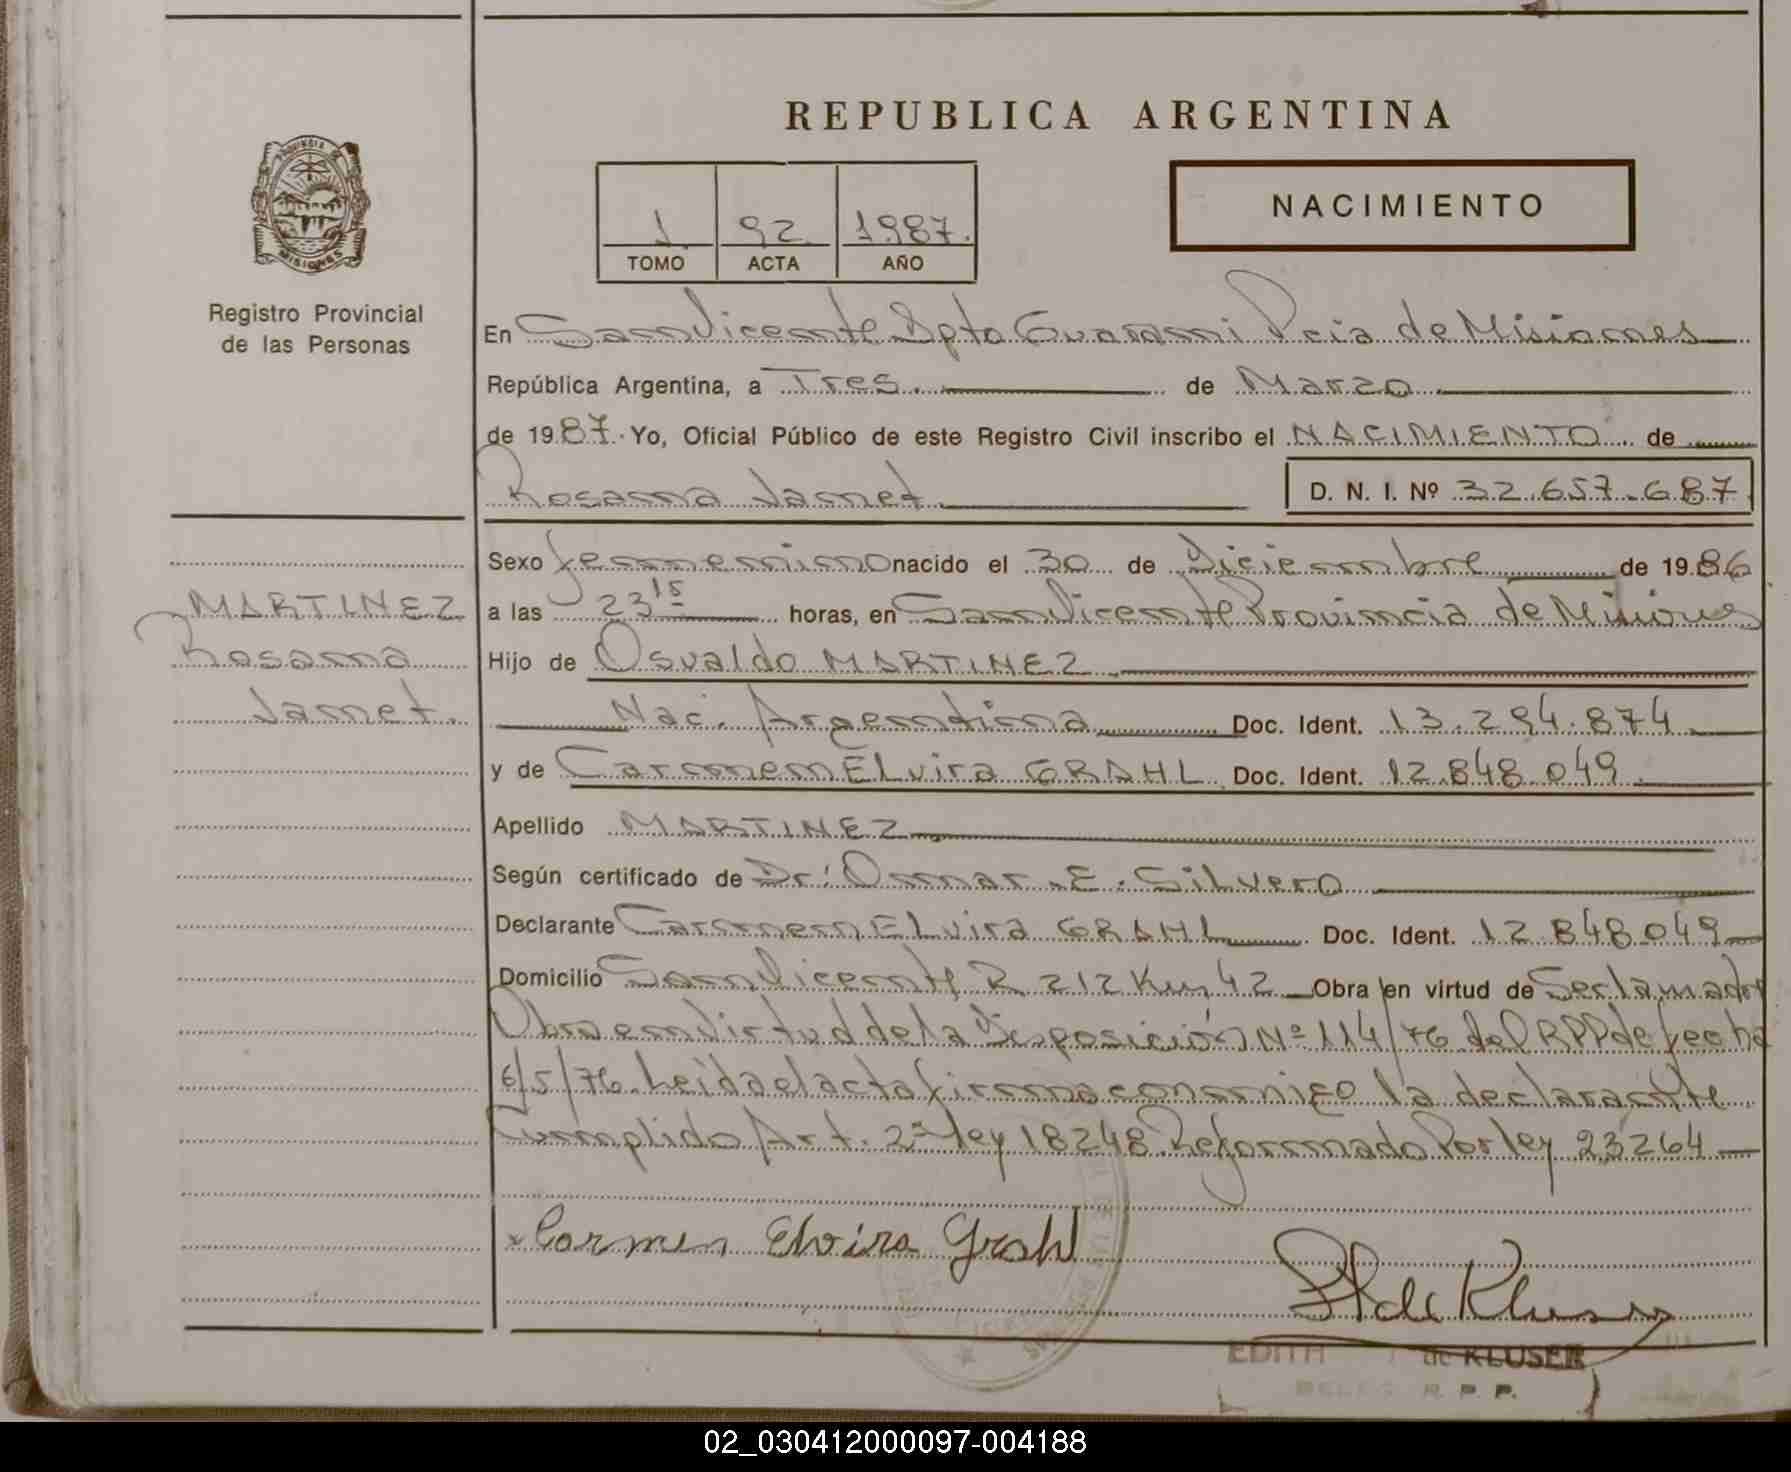 REPUBLICA ARGENTINA
PROVINCIA DE
MISIONES
Registro Provincial
de las Personas
1 92 1987.
TOMO ACTA AÑO
NACIMIENTO
En San Vicente Dpto Guarani Pcia de Misiones
República Argentina, a Tres. de Marzo
de 1987. Yo, Oficial Público de este Registro Civil inscribo el NACIMIENTO de
Rosana Janet D. N. I. Nº 32.657.687
MARTINEZ
Rosana
Janet.
Sexo femenino nacido el 30 de Diciembre de 1986
a las 23 15 horas, en San Vicente Provincia de Misiones
Hijo de Osvaldo MARTINEZ
Nac. Argentina Doc. Ident. 13.294.874
y de Carmen ELvira GRAHL Doc. Ident. 12.848.049
Apellido MARTINEZ
Según certificado de Dr: Omar E. SiLvero
Declarante Carmen ELvira GRAHL Doc. Ident. 12 848 049
Domicilio San Vicente R 212 Km 42 Obra en virtud de Ser la madre
Obra en Virtud de la Disposición Nº 114/76 del RPP de fecha
6/5/76. Leida el acta firma conmigo la declarante
Cumplido Art. 2º ley 18248 Reformado Por ley 23264
x Carmen Elvira Grahl
de Kluser
EDITH de KLUSER
R. P. P.
02_030412000097-004188